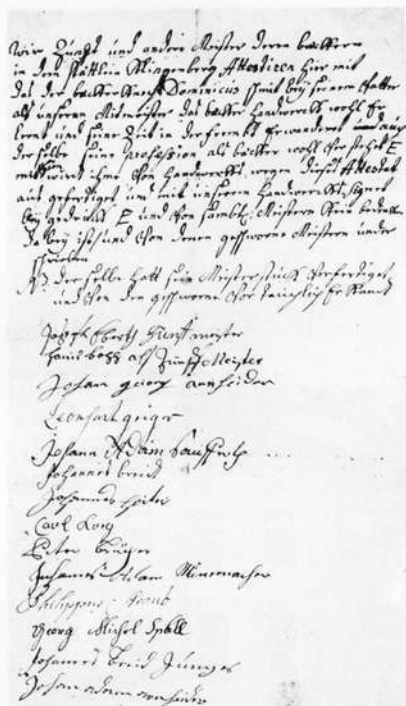 Wir Zunfft und andere Meister deren beckern
in dem stättlein Klingenberg Attestiren hier mit
das der becker Knecht Dominicus schmit bey seinem Vatter
als unserem Mitmeister das becker Handwerck wohl Er
lernt und seine Zeit in der frembt Erwandered und auch
der selbe seine profession als becker wohl Verstehet
mitt wird ihme Von Handwercks wegen dieses Attestat
aus gefertiget und mit unserem Handwercks signet
bey gedruckt und Von sambtl. Meistern
da bey ist und Von denen geschworne Meistern under
schrieben
NB der selbe hatt sein Meisterstück Verfertiget
und Von den geschworne Vor tauchlich Erkandt
Joseph Eberth Zunfft meister
Hans als Zunfft Meister
Johann georg arnheider
Leonhart geiger
Johann Adam
Johannes breid
Johannes
Carl
Peter Krüger
Johannes
Philippus
Georg Michel Spall
Johannes breid Junger
Johan adam arnheider